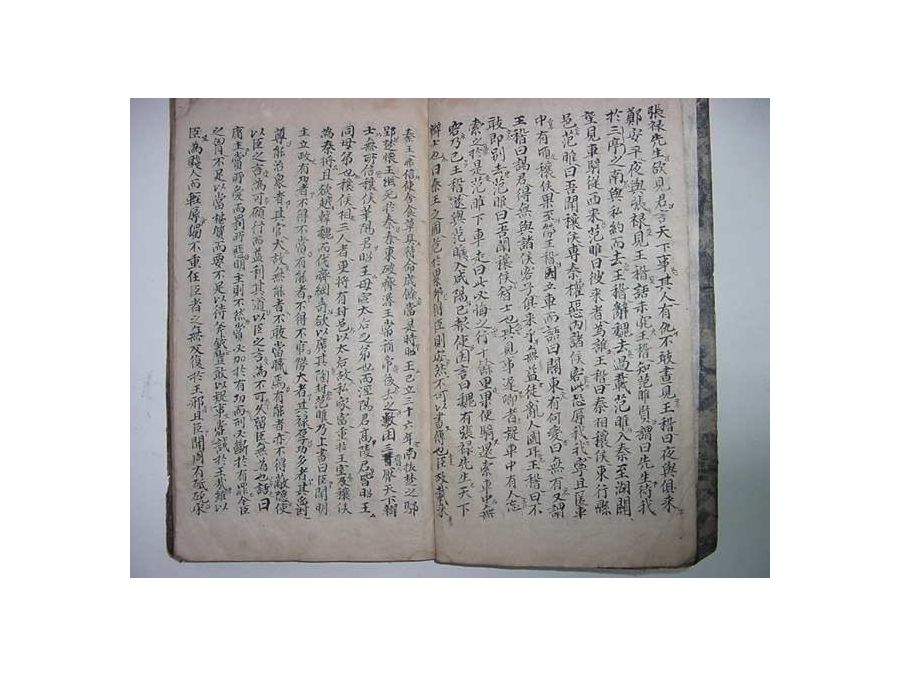 張祿先生欲見君言天下事其人有仇不敢晝見王稽曰夜與俱來
鄭安平夜與張祿見王稽語未究王稽知范睢賢謂曰先生待我
於三亭之南與私約而去王稽辭魏去過載范睢入秦至湖關
望見車騎從西來范睢曰彼來者為誰王稽曰秦相穰侯東行縣
邑范睢曰吾聞穰侯專秦權惡內諸侯客此恐辱我我寧且匿車
中有頃穰侯果至勞王稽因立車而語曰關東有何變曰無有又謂
王稽曰謁君得無與諸侯客子俱來乎無益徒亂人國耳王稽曰不
敢即別去范睢曰吾聞穰侯智士也其見事遲鄉者疑車中有人忘
索之於是范睢下車走曰此必悔之行十餘里果使騎還索車中無
客乃已王稽遂與范睢入咸陽已報使因言曰魏有張祿先生天下
辯士也曰秦王之國危於累卵得臣則安然不可以書傳也臣故載來
秦王弗信使舍食草具待命歲餘當是時昭王已立三十六年南拔楚之鄢
郢楚懷王幽死於秦秦東破齊湣王常稱帝後去之數困三晉厭天下辯
士無所信穰侯華陽君昭王母宣太后之弟也而涇陽君高陵君皆昭王
同母弟也穰侯相三人者更將有封邑以太后故私家富重於王室及穰侯
為秦將且欲越韓魏而伐齊綱壽欲以廣其陶封范睢乃上書曰臣聞明
主立政有功者不得不賞有能者不得不官勞大者其祿厚功多者其爵
尊能治衆者其官大故無能者不敢當職焉有能者亦不得蔽隱使
以臣之言為可願行而益利其道以臣之言為不可久留臣無為也語曰
庸主賞所愛而罰所惡明主則不然賞必加於有功而刑必斷於有罪今臣
之胷不足以當椹質而要不足以待斧鉞豈敢以疑事嘗試於王哉雖以
臣為賤人而輕辱獨不重任臣者之無反復於王邪且臣聞周有砥砨宋